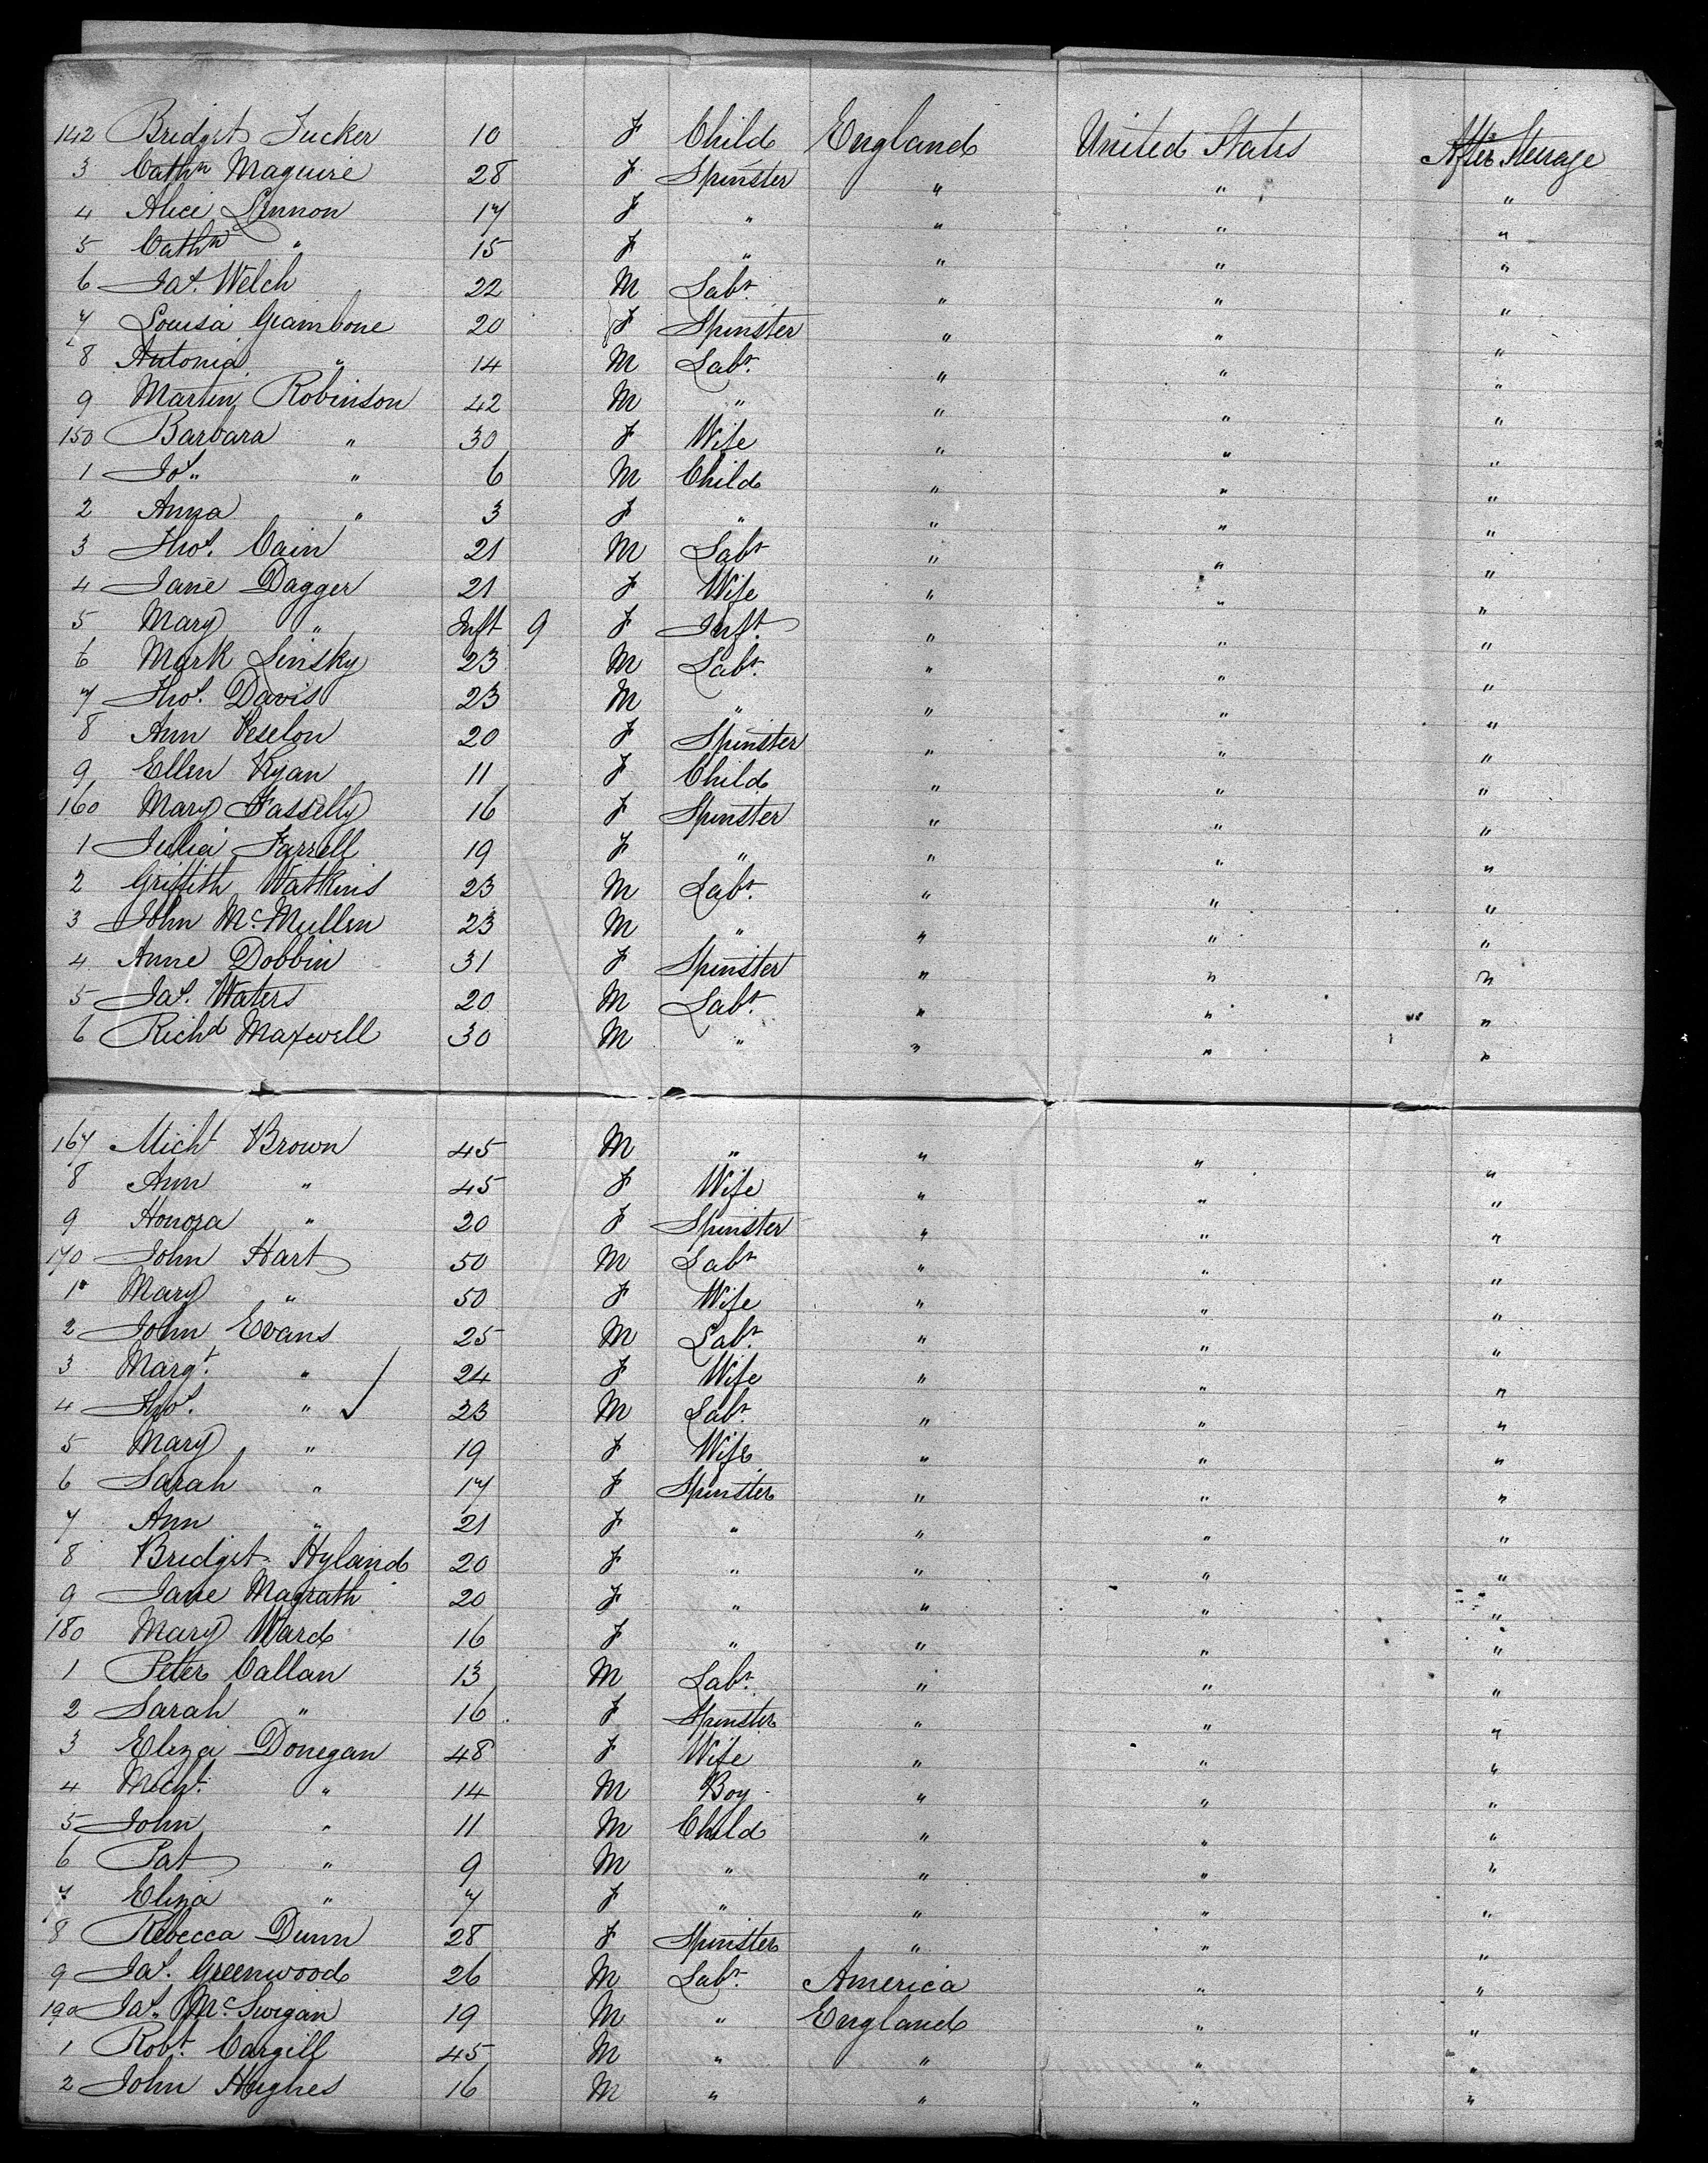 142 Bridget Tucker 10 F Child England United States After Steerage
3 Cathn Maguire 28 F Spinster " " "
4 Alice Lennon 17 F " " " "
5 Cathn " 15 F " " " "
6 Jas. Welch 22 M Labr. " " "
7 Louisa Giambone 20 F Spinster " " "
8 Antonia " 14 M Labr. " " "
9 Martin Robinson 42 M " " " "
150 Barbara " 30 F Wife " " "
1 Jos. " 6 M Child " " "
2 Anna " 3 F " " " "
3 Thos. Cain 21 M Labr " " "
4 Jane Dagger 21 F Wife " " "
5 Mary " Inft 9 F Inft. " " "
6 Mark Linsky 23 M Labr. " " "
7 Thos. Davis 23 M " " " "
8 Ann 20 F Spinster " " "
9 Ellen Ryan 11 F Child " " "
160 Mary Fasselly 16 F Spinster " " "
1 Julia Farrell 19 F " " " "
2 Griffith Watkins 23 M Labr. " " "
3 John McMullen 23 M " " " "
4 Anne Dobbin 31 F Spinster " " "
5 Jas. Waters 20 M Labr. " " "
6 Richd Maxwell 30 M " " " "
167 Michl Brown 45 M " " " "
8 Ann " 45 F Wife " " "
9 Honora " 20 F Spinster " " "
170 John Hart 50 M Labr " " "
1 Mary " 50 F Wife " " "
2 John Evans 25 M Labr. " " "
3 Margt. " 24 F Wife " " "
4 Thos. " ✓ 23 M Labr. " " "
5 Mary " 19 F Wife " " "
6 Sarah " 17 F Spinster " " "
7 Ann " 21 F " " " "
8 Bridget Hyland 20 F " " " "
9 Jane Magrath 20 F " " " "
180 Mary Ward 16 F " " " "
1 Peter Callan 13 M Labr. " " "
2 Sarah " 16 F Spinster " " "
3 Eliza Donegan 48 F Wife " " "
4 Michl. " 14 M Boy " " "
5 John " 11 M Child " " "
6 Pat " 9 M " " " "
7 Eliza " 7 F " " " "
8 Rebecca Dunn 28 F Spinster " " "
9 Jas. Greenwood 26 M Labr. America " "
190 Jas. McSwigan 19 M " England " "
1 Robt. Cargill 45 M " " " "
2 John Hughes 16 M " " " "